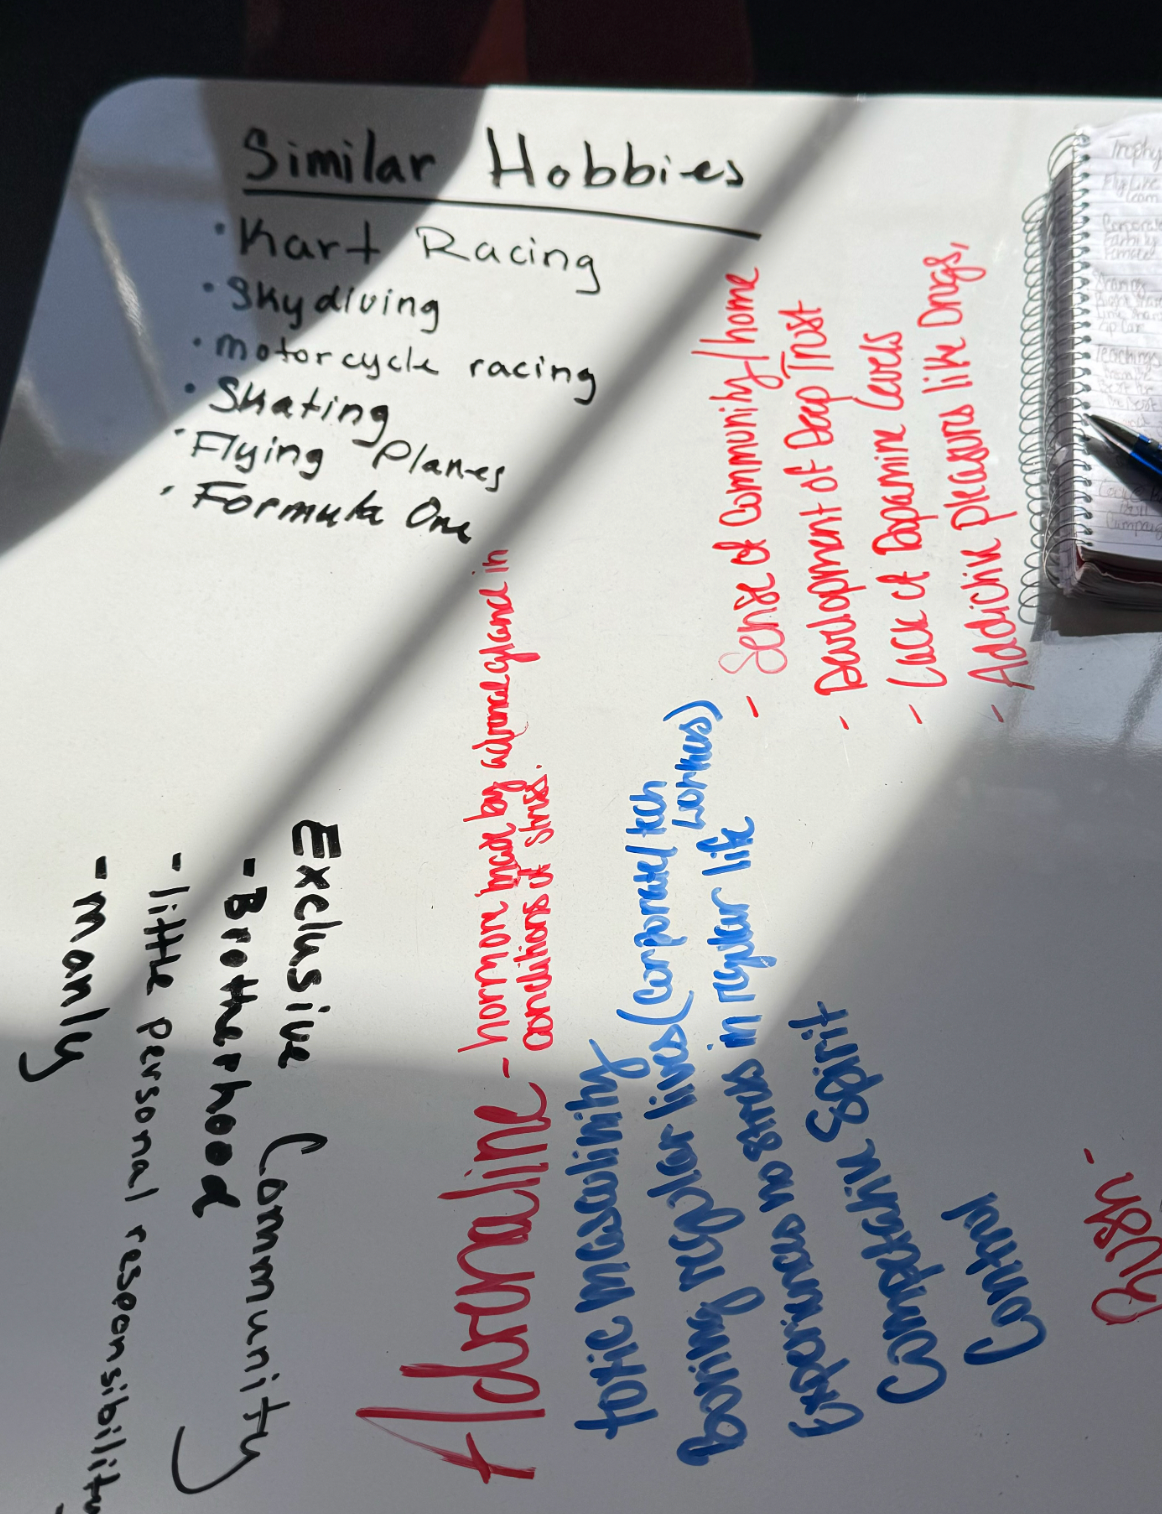 Similar Hobbies
• Kart Racing
• Skydiving
• motorcycle racing
• Skating
• Flying Planes
• Formula One
Exclusive Community
- Brotherhood
- little personal responsibility
- manly
Adrenaline - hormone made by adrenal gland in
conditions of stress.
toxic masculinity
Boring regular lives (corporate/tech
workers)
Experiences no stress in regular life
Competative Spirit
Control
- Sense of Community/home
- Development of Deep Trust
- Lack of Dopamine Levels
- Addictive pleasures like Drugs,
Rush -
Trophy
Teachings